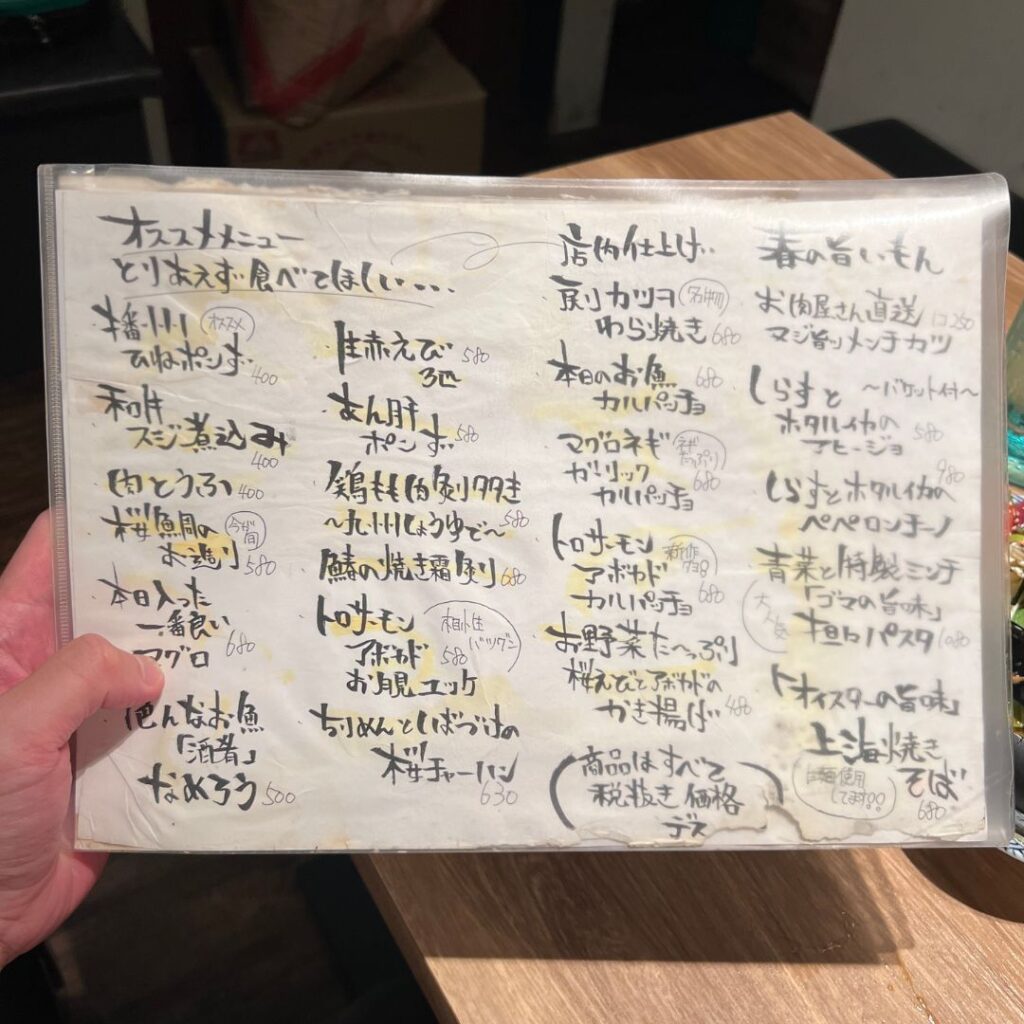 オススメメニュー
とりあえず食べてほしい....
播州 オススメ
ひねポンず 400
和牛
スジ煮込み
400
肉とうふ 400
桜鯛の 今が旬
お造り 580
本日入った
一番良い
マグロ 680
色んなお魚
「酒肴」
なめろう 500
生赤えび 580
3匹
あん肝
ポンず 580
鶏もも肉炙りタタキ
〜九州しょうゆで〜 580
鰆の焼き霜炙り 680
トロサーモン 相性バツグン
アボカド 580
お月見ユッケ
ちりめんとしばづけの
桜チャーハン
630
店内仕上げ
戻りカツヲ 名物
わら焼き 680
本日のお魚 680
カルパッチョ
マグロネギ ネギたっぷり
ガーリック 680
カルパッチョ
トロサーモン 新作
アボカド
カルパッチョ 680
お野菜た〜っぷり
桜えびとアボカドの
かき揚げ 480
(商品はすべて
税抜き価格
デス)
春の旨いもん
お肉屋さん直送 1コ 250
マジ旨ッメンチカツ
しらすと 〜バケット付〜
ホタルイカの
アヒージョ 580
980
しらすとホタルイカの
ペペロンチーノ
青菜と特製ミンチ
「ゴマの旨味」 大人気
担々パスタ 1080
「オイスターの旨味」
上海焼き
そば
使用してます!!
680